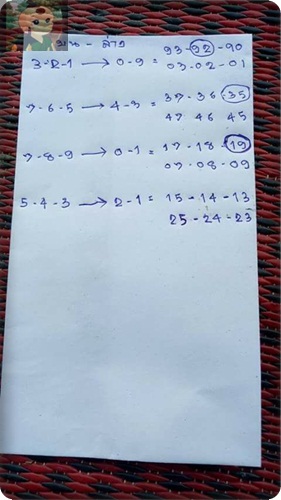 บน - ล่าง 93-92-90
3-2-1 → 0-9 = 03-02-01
7-6-5 → 4-3 = 37-36-35
47 46 45
7-8-9 → 0-1 = 17-18-19
07-08-09
5-4-3 → 2-1 = 15-14-13
25-24-23